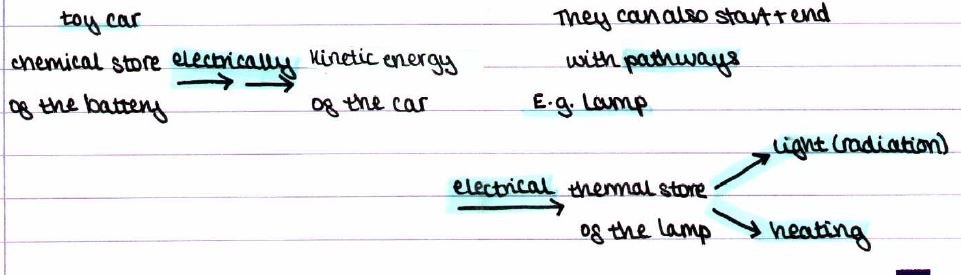 toy car
chemical store electrically kinetic energy
of the battery of the car
They can also start + end
with pathways
E.g. Lamp
light (radiation)
electrical thermal store
of the lamp heating